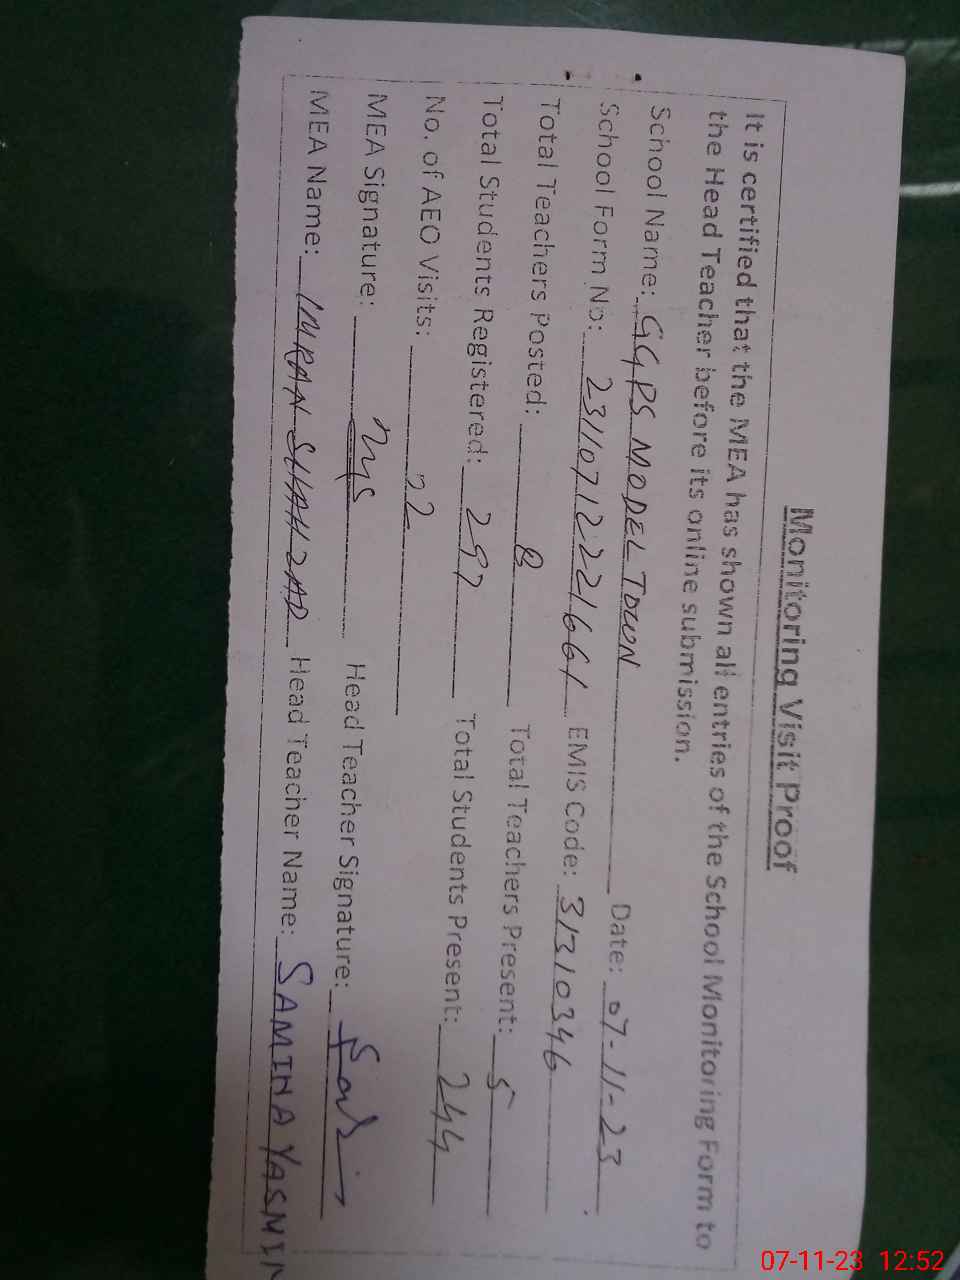 Monitoring Visit Proof
It is certified that the MEA has shown all entries of the School Monitoring Form to
the Head Teacher before its online submission.
School Name: GGPS MODEL TOWN Date: 07-11-23
School Form No: 23110712221661 EMIS Code: 31310346
Total Teachers Posted: 8 Total Teachers Present: 5
Total Students Registered: 297 Total Students Present: 244
No. of AEO Visits: 02
MEA Signature: Head Teacher Signature:
MEA Name: IMRAN SHAHZAD Head Teacher Name: SAMINA YASMIN
07-11-23 12:52